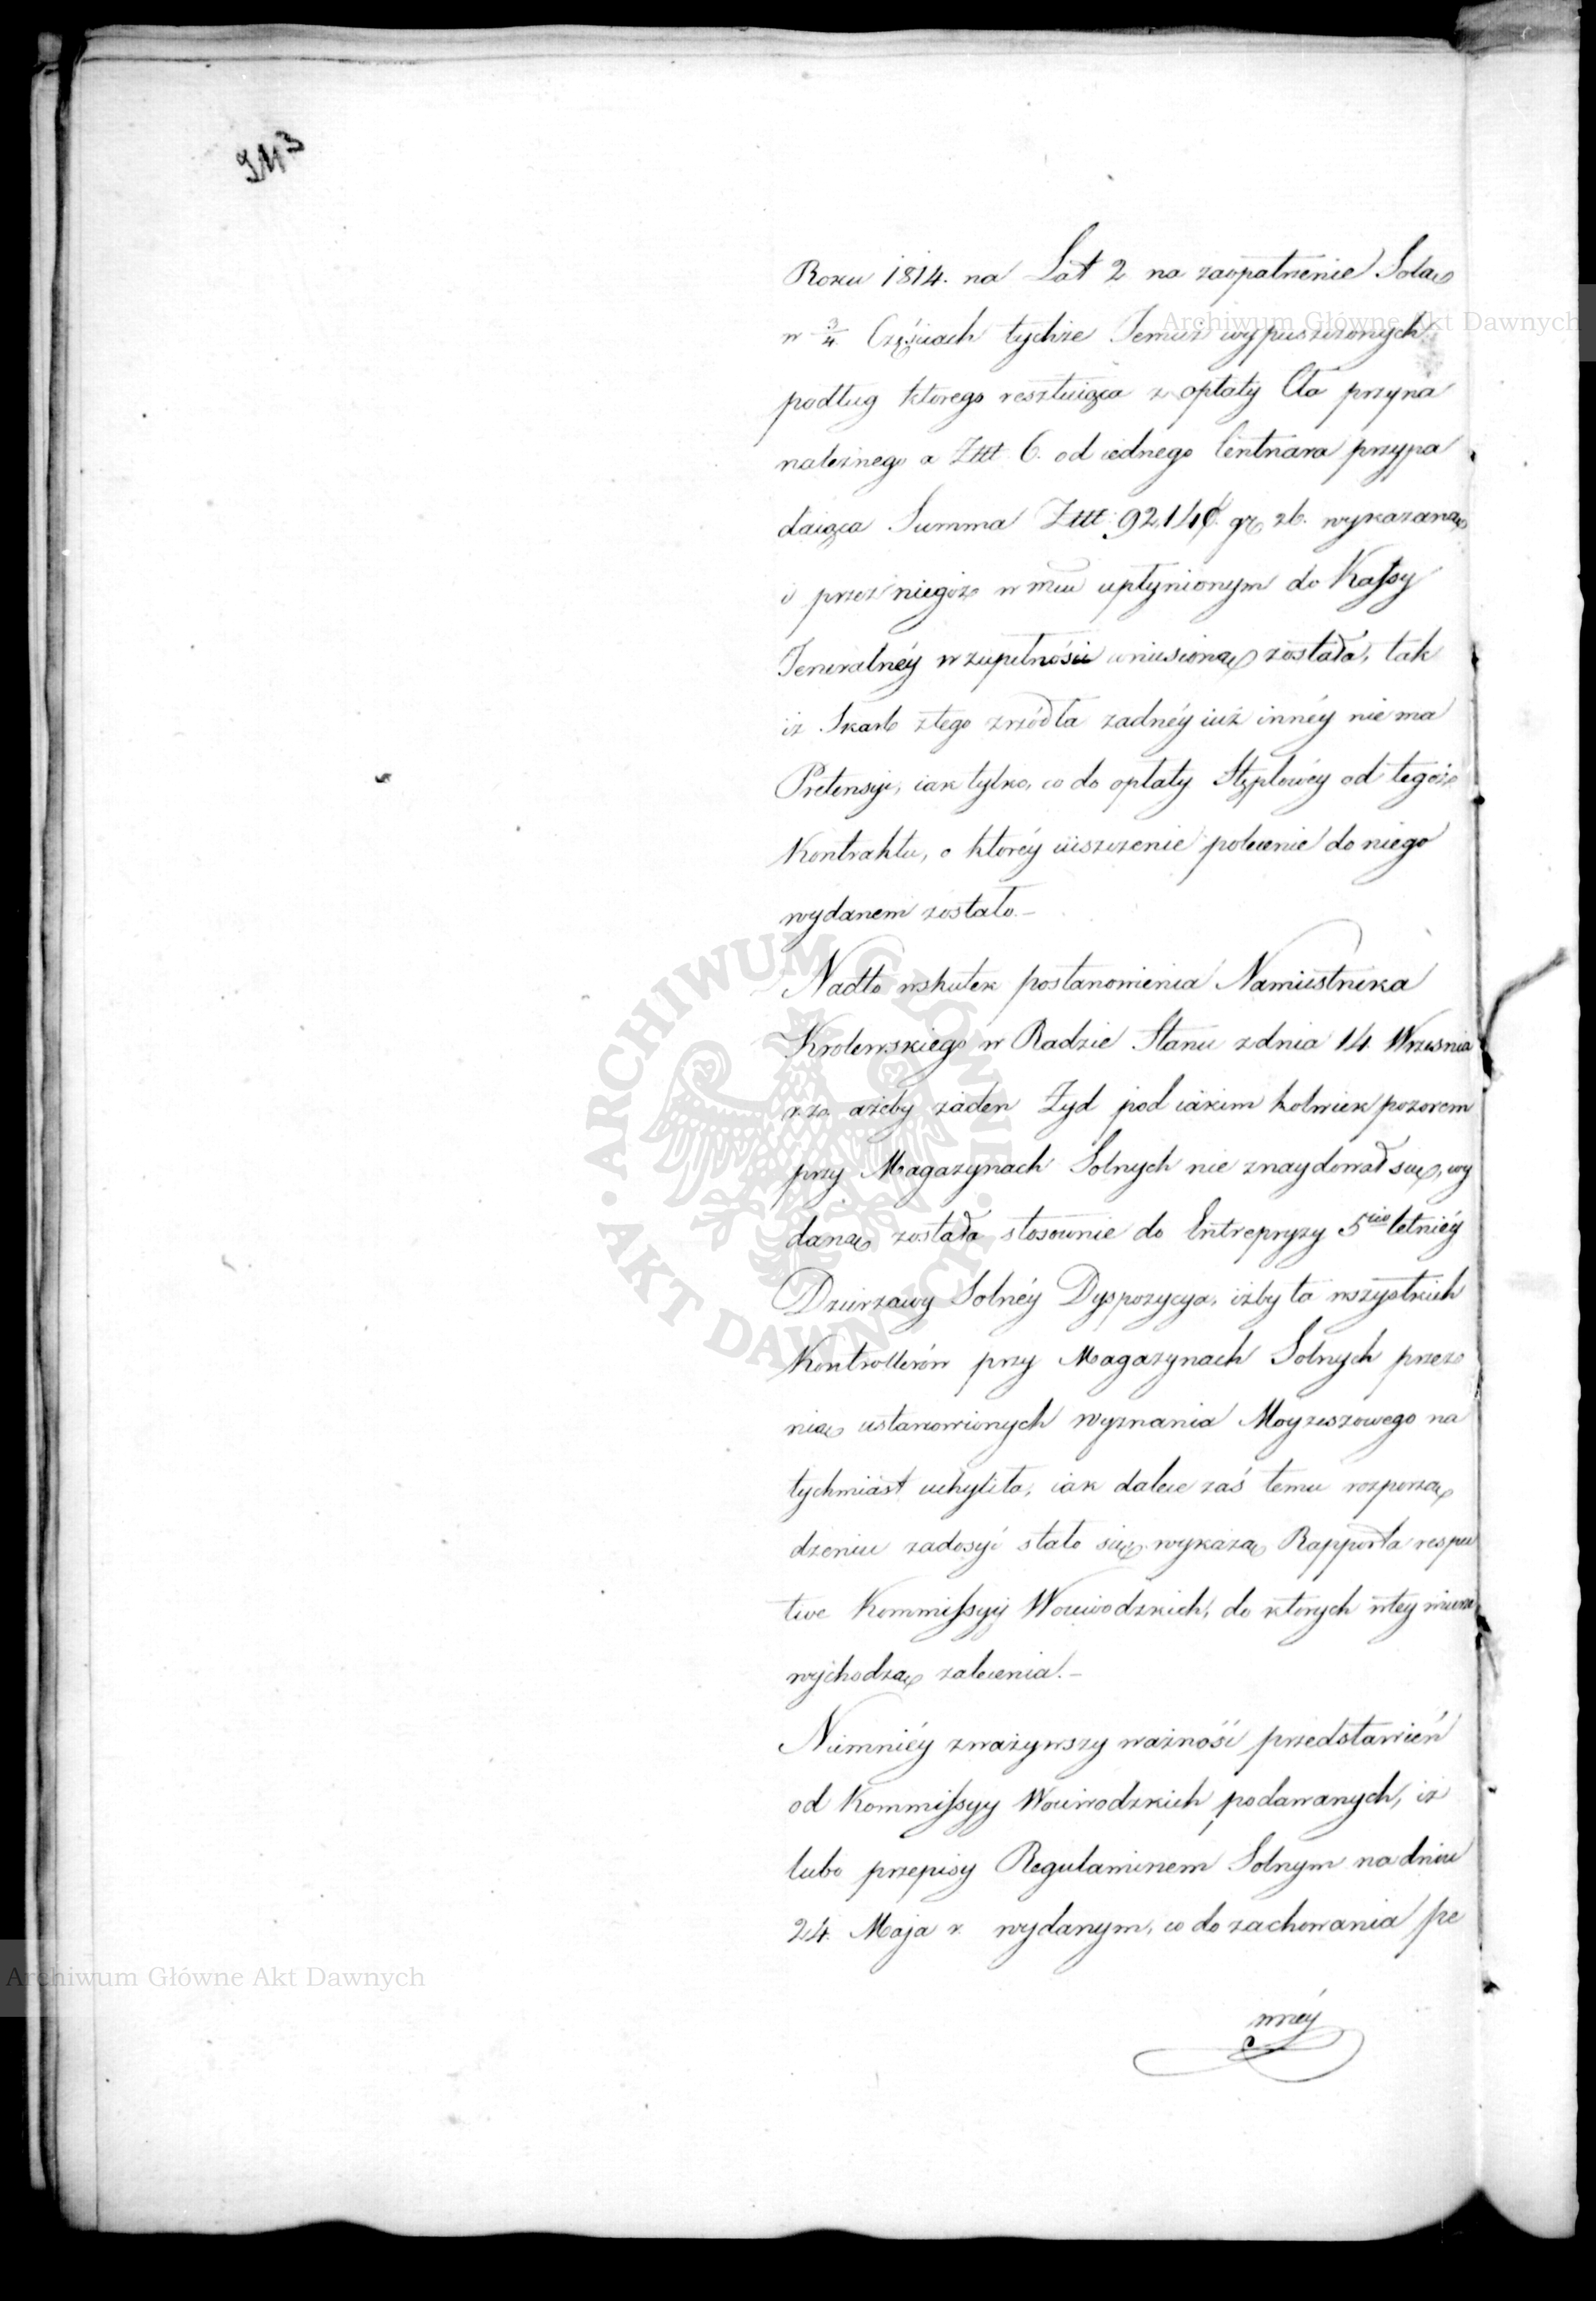 Roku 1814. na Lat 2 na zaopatrzenie Solą
w 3/4 Częściach tychże Jemuż wypuszczonych
podług ktorego resztuiąca z opłaty Cła przyna
należnego a Zttt 6. od iednego Centnara przypa
daiąca Summa Zttt 92,14 gr 26. wykazaną
i przez niegoż w mcu upłynionym do Kassy
Jeneralnéy w zupełności wniesioną została, tak
iż Skarb z tego zrzódła żadnéy iuż innéy nie ma
Pretensyi, iak tylko, co do opłaty Stęplowéy od tegoż
Kontraktu, o któréy uiszczenie polecenie do niego
wydanem zostało.-
Nadto wskutek postanowienia Namiestnika
Krolewskiego w Radzie Stanu z dnia 14 Wrzesnia
r.z. ażeby żaden Żyd pod iakim kolwiek pozorem
przy Magazynach Solnych nie znaydował się, wy
daną została stosownie do Entrepryzy 5cio letniéy
Dzierzawy Solnéy Dyspozycya, iżby ta wszystkich
Kontrollerów przy Magazynach Solnych przez
nią ustanowionych wyznania Moyżeszowego na
tychmiast uchyliła, iak dalece zaś temu rozporzą
dzeniu zadosyć stało się, wykażą Rapporta respec
tive Kommissyÿ Woiewodzkich, do których w tey mierze
wychodzą zalecenia.-
Niemniéy zważywszy ważność przedstawień
od Kommissyy Woiewodzkich podawanych, iż
lubo przepisy Regulaminem Solnym na dniu
24. Maja r. wydanym, co do zachowania pe
wnéy
Archiwum Główne Akt Dawnych
ARCHIWUM GŁÓWNE AKT DAWNYCH
Archiwum Główne Akt Dawnych